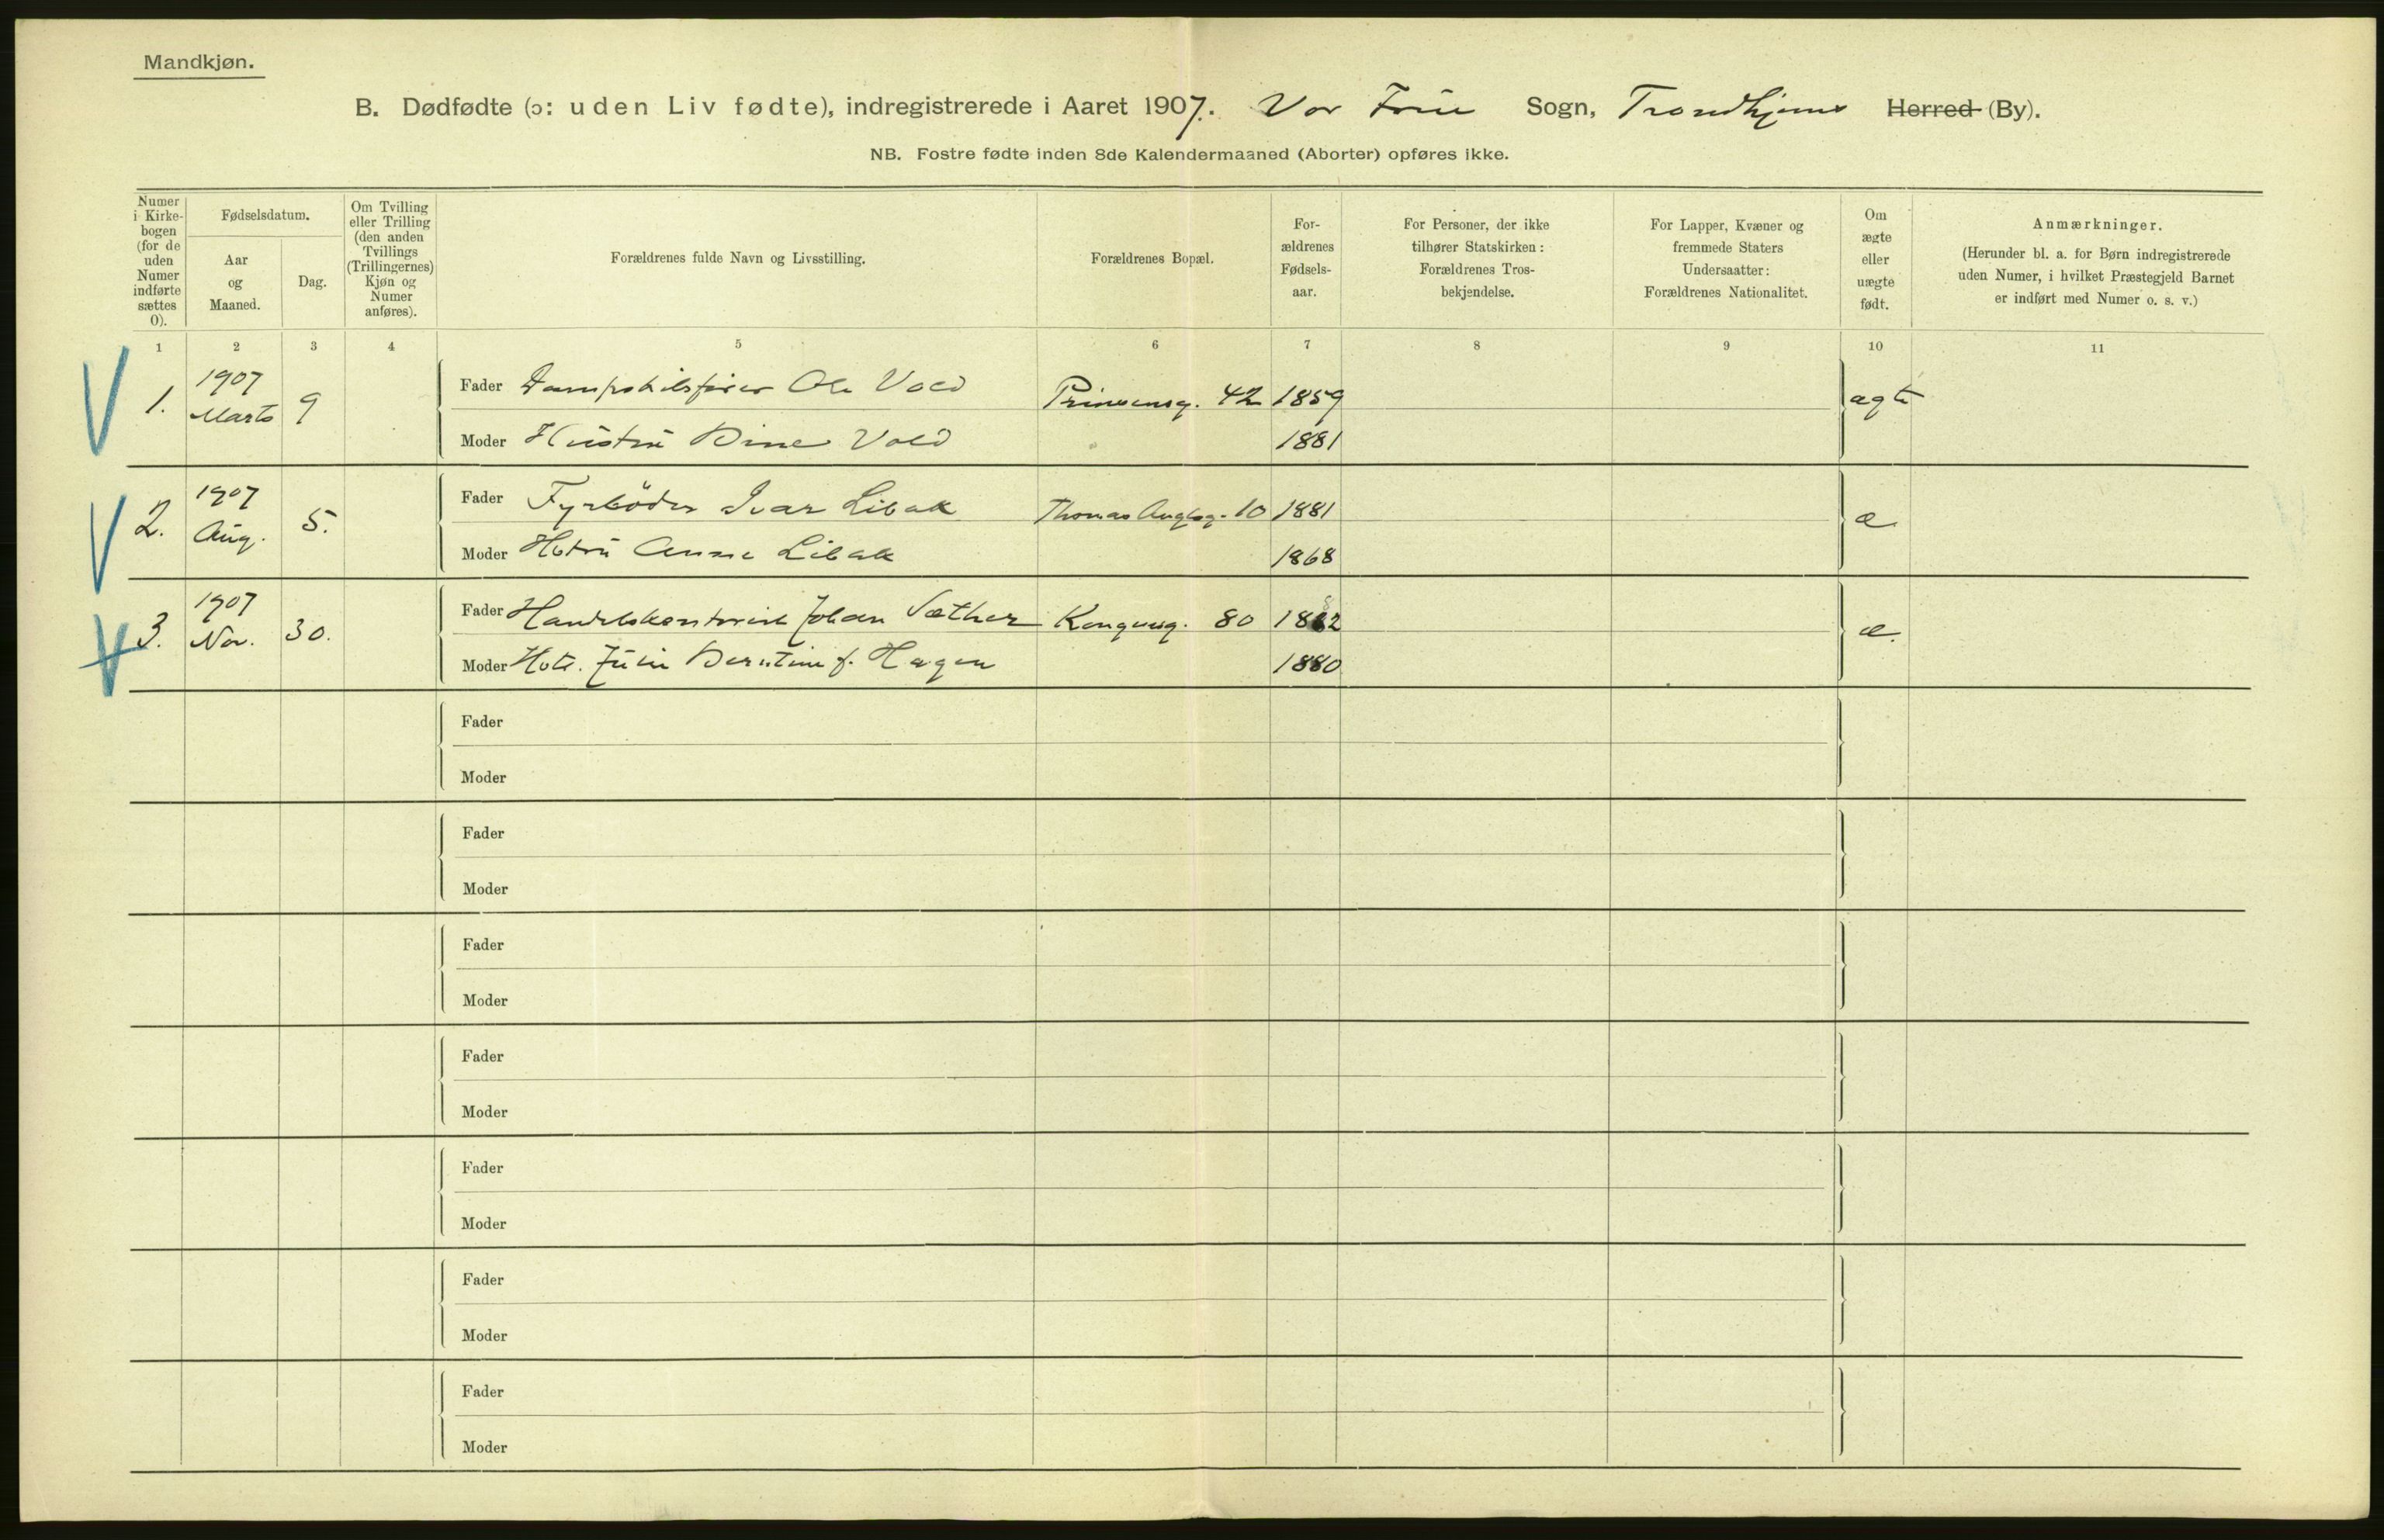 Mandkjøn.
B. Dødfødte (ɔ: uden Liv fødte), indregistrerede i Aaret 1907. Vor Frue Sogn, Trondhjems Herred (By).
NB. Fostre fødte inden 8de Kalendermaaned (Aborter) opføres ikke.
Numer
i Kirke-
bogen
(for de
uden
Numer
indførte
sættes
0).
Fødselsdatum.
Aar
og
Maaned.
Dag.
Om Tvilling
eller Trilling
(den anden
Tvillings
(Trillingernes)
Kjøn og
Numer
anføres).
Forældrenes fulde Navn og Livsstilling.
Forældrenes Bopæl.
For-
ældrenes
Fødsels-
aar.
For Personer, der ikke
tilhører Statskirken:
Forældrenes Tros-
bekjendelse.
For Lapper, Kvæner og
fremmede Staters
Undersaatter:
Forældrenes Nationalitet.
Om
ægte
eller
uægte
født.
Anmærkninger.
(Herunder bl. a. for Børn indregistrerede
uden Numer, i hvilket Præstegjeld Barnet
er indført med Numer o. s. v.)
1 2 3 4 5 6 7 8 9 10 11
1. 1907 Marts 9 Fader Dampskibsfører Ole Vold Prinsensg. 42 1859 ægte
Moder Hustru Dine Vold 1881
2. 1907 Aug. 5. Fader Fyrbøder Ivar Libak Thomas Anglsg. 10 1881 æ
Moder Hstru Anna Libak 1868
3. 1907 Nov. 30. Fader Handelskontorist Johan Sæther Kongensg. 80 1882 æ.
Moder Hstr. Julie Berntine f. Hagen 1880
Fader
Moder
Fader
Moder
Fader
Moder
Fader
Moder
Fader
Moder
Fader
Moder
Fader
Moder